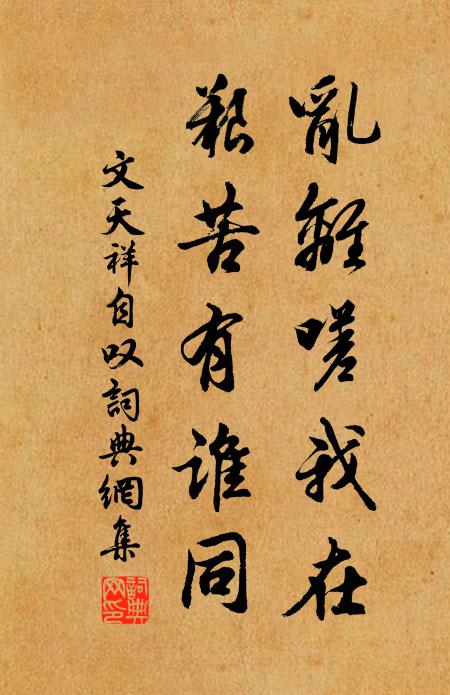 亂離嗟我在
艱苦有誰同
文天祥自叹詞典網集
詞典网印